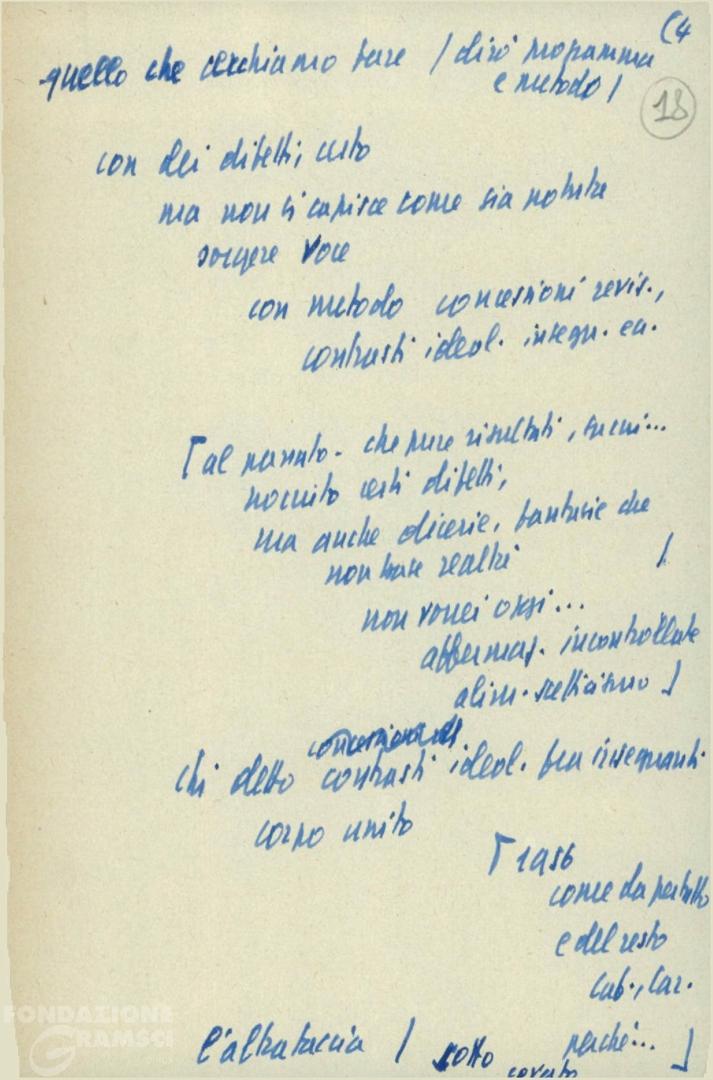 (4
quello che cerchiamo fare / dirò programma
e metodo /
18
con dei difetti, certo
ma non si capisce come sia potuta
sorgere voce
con metodo concessioni revis.,
contrasti ideol. insegn. ecc.
[ al passato - che pure risultati, succ...
nociuto certi difetti,
ma anche dicerie, fantasie che
non base realtà /
non vorrei oggi...
affermaz. incontrollate
alim. scetticismo ]
concessioni
chi detto contrasti ideol. fra insegnanti
corpo unito
[ 1956
come da pertutto
e del resto
perché... ]
l'altra faccia / sotto
FONDAZIONE
GRAMSCI